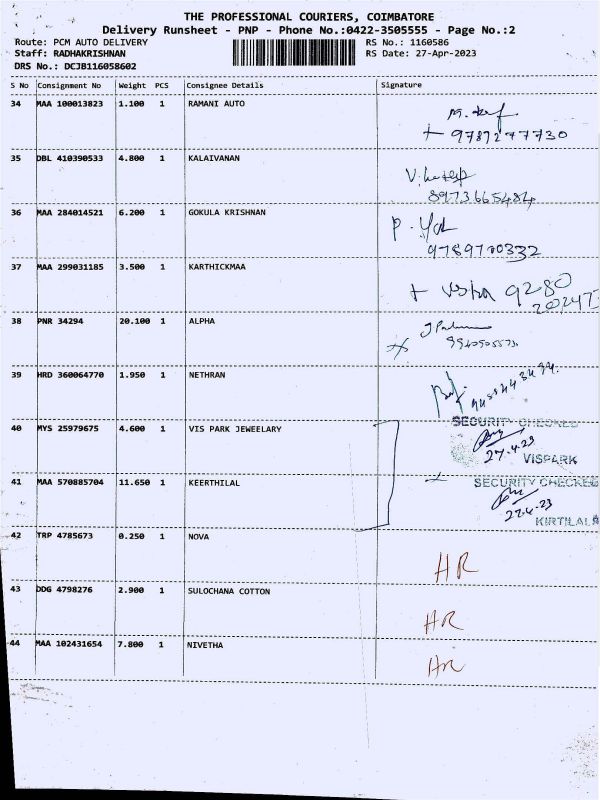 THE PROFESSIONAL COURIERS, COIMBATORE
Delivery Runsheet - PNP - Phone No.:0422-3505555 - Page No.:2
Route: PCM AUTO DELIVERY RS No.: 1160586
Staff: RADHAKRISHNAN RS Date: 27-Apr-2023
DRS No.: DCJB116058602
S No Consignment No Weight PCS Consignee Details Signature
34 MAA 100013823 1.100 1 RAMANI AUTO
9787277730
35 DBL 410390533 4.800 1 KALAIVANAN
8973665484
36 MAA 284014521 6.200 1 GOKULA KRISHNAN
9789700332
37 MAA 299031185 3.500 1 KARTHICKMAA
9280
202477
38 PNR 34294 20.100 1 ALPHA
39 HRD 360064770 1.950 1 NETHRAN
40 MYS 25979675 4.600 1 VIS PARK JEWEELARY
SECURITY CHECKED
27.4.23
VISPARK
41 MAA 570885704 11.650 1 KEERTHILAL
SECURITY CHECKED
27.4.23
KIRTILAL
42 TRP 4785673 0.250 1 NOVA
HR
43 DDG 4798276 2.900 1 SULOCHANA COTTON
HR
44 MAA 102431654 7.800 1 NIVETHA
HR